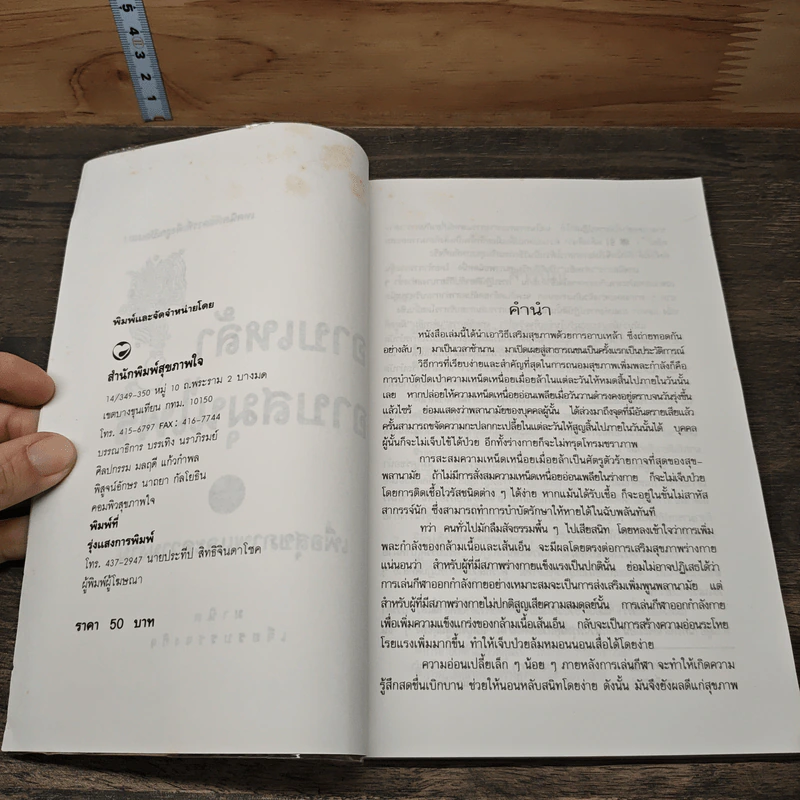 5
4
3
2
1
พิมพ์และจัดจำหน่ายโดย
สำนักพิมพ์สุขภาพใจ
14/349-350 หมู่ 10 ถ.พระราม 2 บางมด
เขตบางขุนเทียน กทม. 10150
โทร. 415-6797 FAX : 416-7744
บรรณาธิการ บรรเทิง นราภิรมย์
ศิลปกรรม มลฤดี แก้วกำพล
พิสูจน์อักษร นาถยา กัลโยธิน
คอมพิวสุขภาพใจ
พิมพ์ที่
รุ่งแสงการพิมพ์
โทร. 437-2947 นายประทีป สิทธิจินดาโชค
ผู้พิมพ์ผู้โฆษณา
ราคา 50 บาท
คำนำ
หนังสือเล่มนี้ได้นำเอาวิธีเสริมสุขภาพด้วยการอาบเหล้า ซึ่งถ่ายทอดกัน
อย่างลับ ๆ มาเป็นเวลาช้านาน มาเปิดเผยสู่สาธารณชนเป็นครั้งแรกเป็นประวัติการณ์
วิธีการที่เรียบง่ายและสำคัญที่สุดในการถนอมสุขภาพเพิ่มพละกำลังก็คือ
การบำบัดปัดเป่าความเหน็ดเหนื่อยเมื่อยล้าในแต่ละวันให้หมดสิ้นไปภายในวันนั้น
เลย หากปล่อยให้ความเหน็ดเหนื่อยอ่อนเพลียเมื่อวันวานดำรงคงอยู่ตราบจนวันรุ่งขึ้น
แล้วไซร้ ย่อมแสดงว่าพลานามัยของบุคคลผู้นั้น ได้ล่วงมาถึงจุดที่มีอันตรายเสียแล้ว
ครั้นสามารถขจัดความกะปลกกะเปลี้ยในแต่ละวันให้สูญสิ้นไปภายในวันนั้นได้ บุคคล
ผู้นั้นก็จะไม่เจ็บไข้ได้ป่วย อีกทั้งร่างกายก็จะไม่ทรุดโทรมชราภาพ
การสะสมความเหน็ดเหนื่อยเมื่อยล้าเป็นศัตรูตัวร้ายกาจที่สุดของสุข-
พลานามัย ถ้าไม่มีการสั่งสมความเหน็ดเหนื่อยอ่อนเพลียในร่างกาย ก็จะไม่เจ็บป่วย
โดยการติดเชื้อไวรัสชนิดต่าง ๆ ได้ง่าย หากแม้นได้รับเชื้อ ก็จะอยู่ในขั้นไม่สาหัส
สากรรจ์นัก ซึ่งสามารถทำการบำบัดรักษาให้หายได้ในฉับพลันทันที
ทว่า คนทั่วไปมักลืมสัจธรรมพื้น ๆ ไปเสียสนิท โดยหลงเข้าใจว่าการเพิ่ม
พละกำลังของกล้ามเนื้อและเส้นเอ็น จะมีผลโดยตรงต่อการเสริมสุขภาพร่างกาย
แน่นอนว่า สำหรับผู้ที่มีสภาพร่างกายแข็งแรงเป็นปกตินั้น ย่อมไม่อาจปฏิเสธได้ว่า
การเล่นกีฬาออกกำลังกายอย่างเหมาะสมจะเป็นการส่งเสริมเพิ่มพูนพลานามัย แต่
สำหรับผู้ที่มีสภาพร่างกายไม่ปกติสูญเสียความสมดุลย์นั้น การเล่นกีฬาออกกำลังกาย
เพื่อเพิ่มความแข็งแกร่งของกล้ามเนื้อเส้นเอ็น กลับจะเป็นการสร้างความอ่อนระโหย
โรยแรงเพิ่มมากขึ้น ทำให้เจ็บป่วยล้มหมอนนอนเสื่อได้โดยง่าย
ความอ่อนเปลี้ยเล็ก ๆ น้อย ๆ ภายหลังการเล่นกีฬา จะทำให้เกิดความ
รู้สึกสดชื่นเบิกบาน ช่วยให้นอนหลับสนิทโดยง่าย ดังนั้น มันจึงยังผลดีแก่สุขภาพ